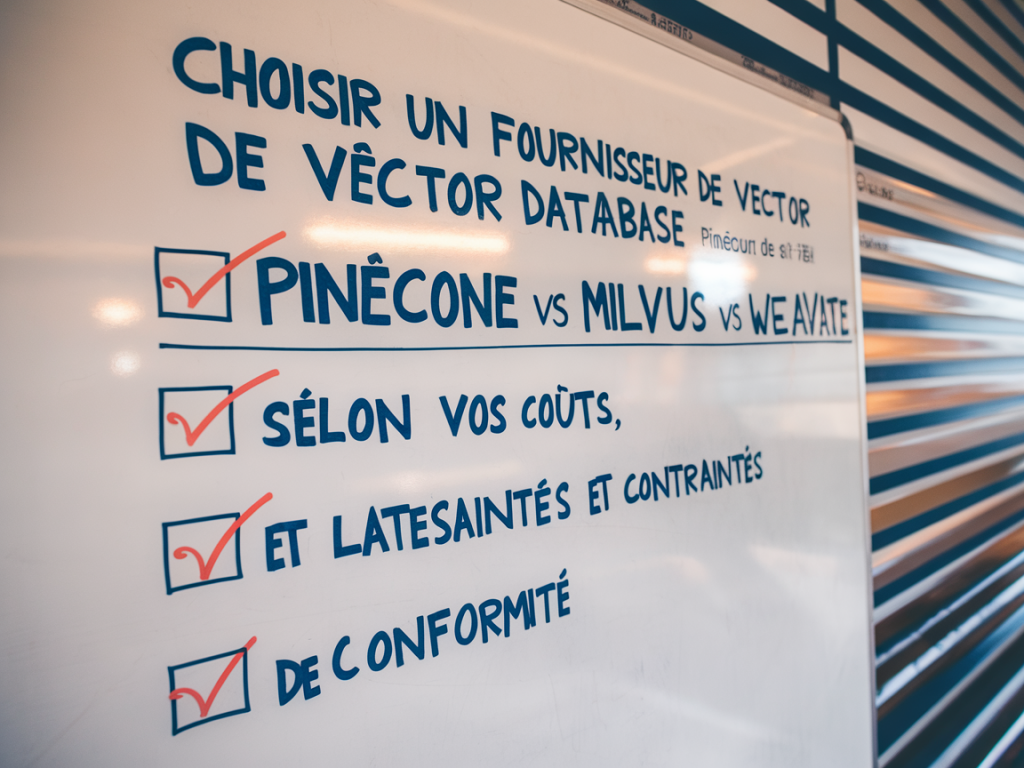 CHOISIR UN FOURNISSEUR DE VECTOR
DE VÊCTOR DATABASE
PINÊCONE VS MILVUS VS WEAVATE
SÉLON VOS COÛTS,
ET LATESAINTÉS ET CONTRAINTÉS
DE CONFORMITÉ